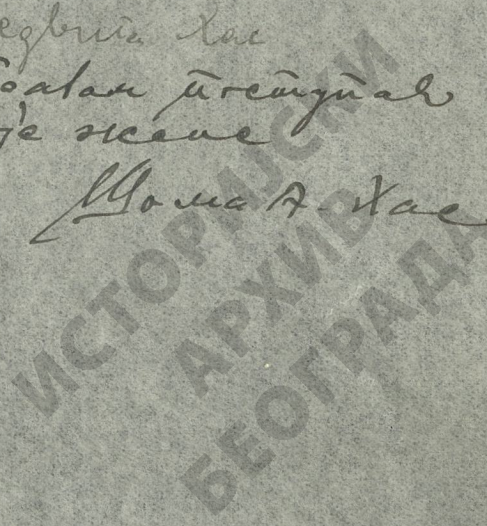 Хас
поступак
је жене
Шома А. Хас
ИСТОРИЈСКИ
АРХИВ
БЕОГРАДА